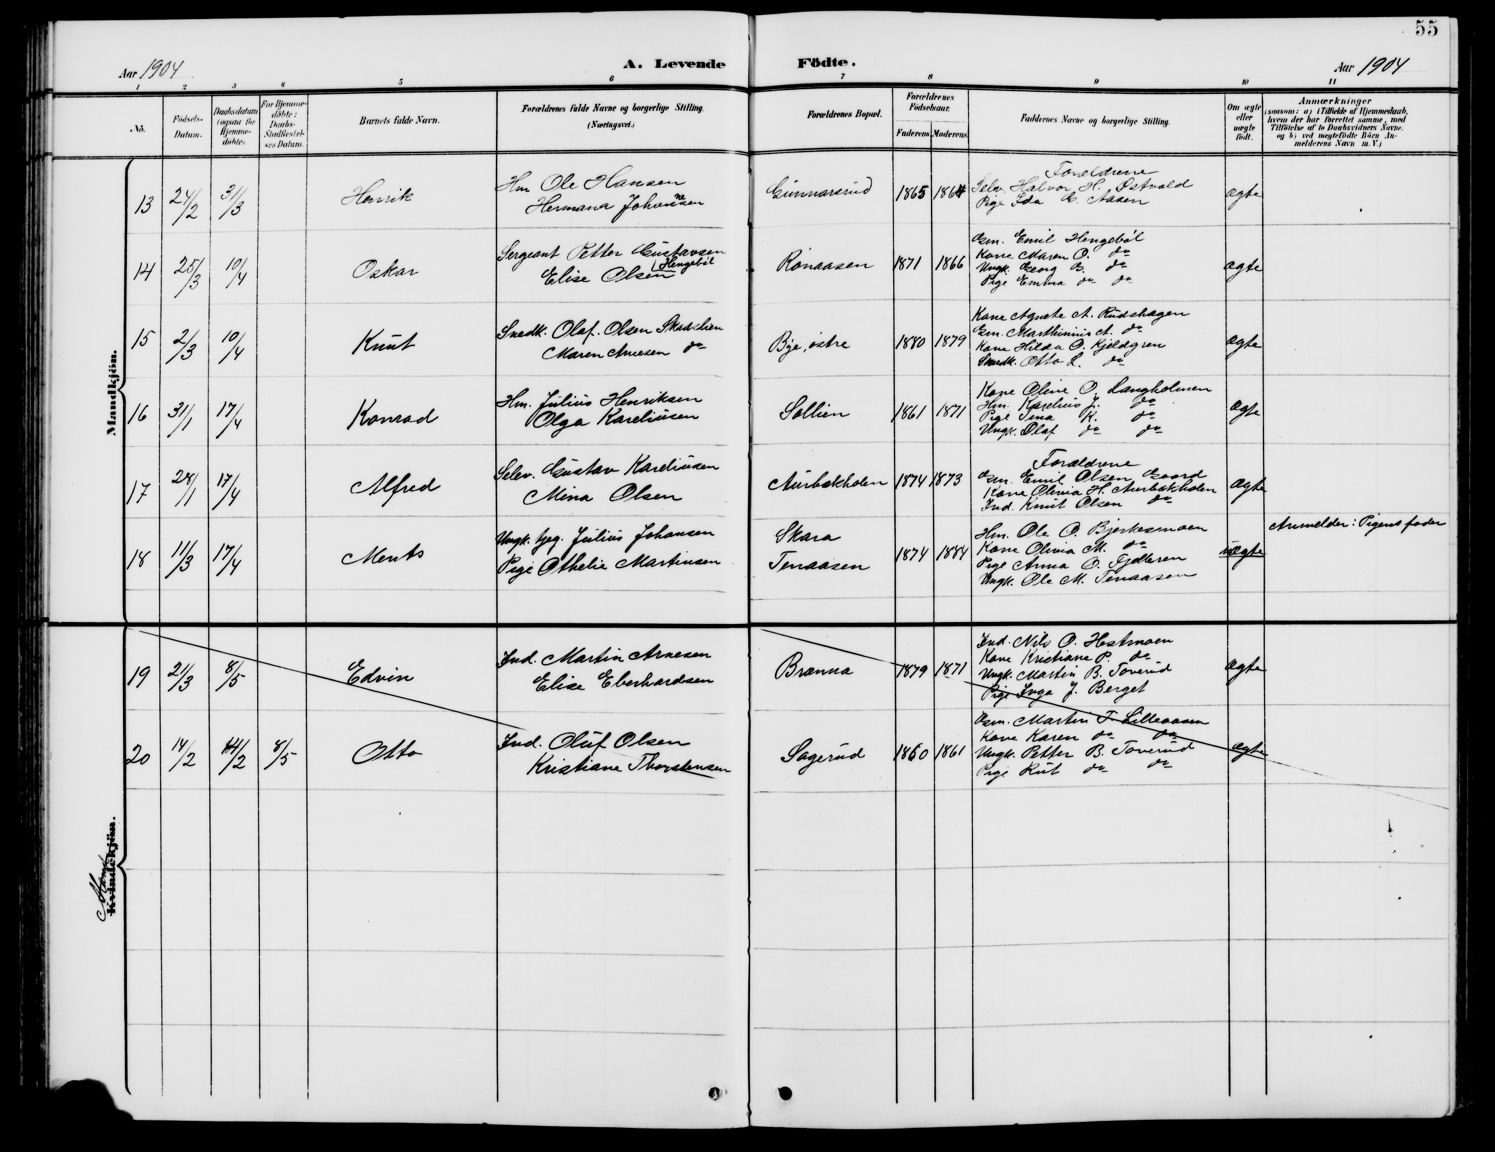 55
Aar 1904
A. Levende Födte.
Aar 1904
1 2 3 4 5 6 7 8 9 10 11
No.
Födsels-Datum.
Daabsdatum (ogsaa för Hjemme-døbte)
For Hjemme-döbte: Daabs-Stadfæstel-ses Datum.
Barnets fulde Navn.
Forældrenes fulde Navne og borgerlige Stilling.
(Næringsvei.)
Forældrenes Bopæl.
Forældrenes Födselsaar.
Faderens. Moderens.
Faddernes Navne og borgerlige Stilling.
Om ægte eller uægte födt.
Anmærkninger
(saasom: a) i Tilfælde af Hjemmedaab,
hvem der har forrettet samme, med
Tilföielse af to Daabsvidners Navne.
og b) ved uægtefödte Börn An-
melderens Navn m. V.)
Mandkjön.
13 24/2 31/3 Henrik
Hm. Ole Hansen
Hermana Johannesen
Gunnarsrud 1865 1864
Forældrene
Selv. Halvor H. Østvold
Pige Ida G. Aasen
ægte
14 25/3 10/4 Oskar
Sergeant Petter Gustavsen
Elise Olsen Hengebøl
Ronaasen 1871 1866
Gm. Emil Hengebøl
Kone Maren O. do
Ungk. Georg B. do
Pige Emma do do
ægte
15 2/3 10/4 Knut
Snedk. Olaf. Olsen Skadslien
Maren Arnesen do
Bye, østre 1880 1879
Kone Agnete A. Rudshagen
Gm. Marthinius A. do
Kone Hilda O. Kjeldgren
Snedk. Otto L. do
ægte
16 31/1 17/4 Konrad
Hm. Julius Henriksen
Olga Kareliusen
Sollien 1861 1871
Kone Oline O. Langholmen
Hm. Karelius J. do
Pige Tina K. do
Ungk. Olaf do do
ægte
17 28/1 17/4 Alfred
Selv. Gustav Kareliusen
Mina Olsen
Aurbekholen 1874 1873
Forældrene
Gm. Emil Olsen Gaard
Kone Olivia H. Aurbekholen
Ind. Knut Olsen do
ægte
18 11/3 17/4 Ments
Ungk. Jeg. Julius Johansen
Pige Othelie Martinsen
Skara
Tenaasen 1874 1884
Hm. Ole O. Bjerkesmoen
Kone Olivia M. do
Pige Anna O. Fjelleren
Ungk. Ole M. Tenaasen
uægte
Anmelder: Pigens fader
Mand
Kvindekjön.
19 21/3 8/5 Edvin
Ind. Martin Arnesen
Elise Eberhardsen
Brænna 1879 1871
Ind. Nils O. Hestmoen
Kone Kristiane P. do
Ungk. Martin B. Toverud
Pige Inga J. Berget
ægte
20 14/2 14/2 8/5 Otto
Ind. Oluf Olsen
Kristiane Thorstensen
Sagerud 1860 1861
Gm. Martin T. Lilleaasen
Kone Karen do do
Ungk. Petter B. Toverud
Pige Rut do do
ægte